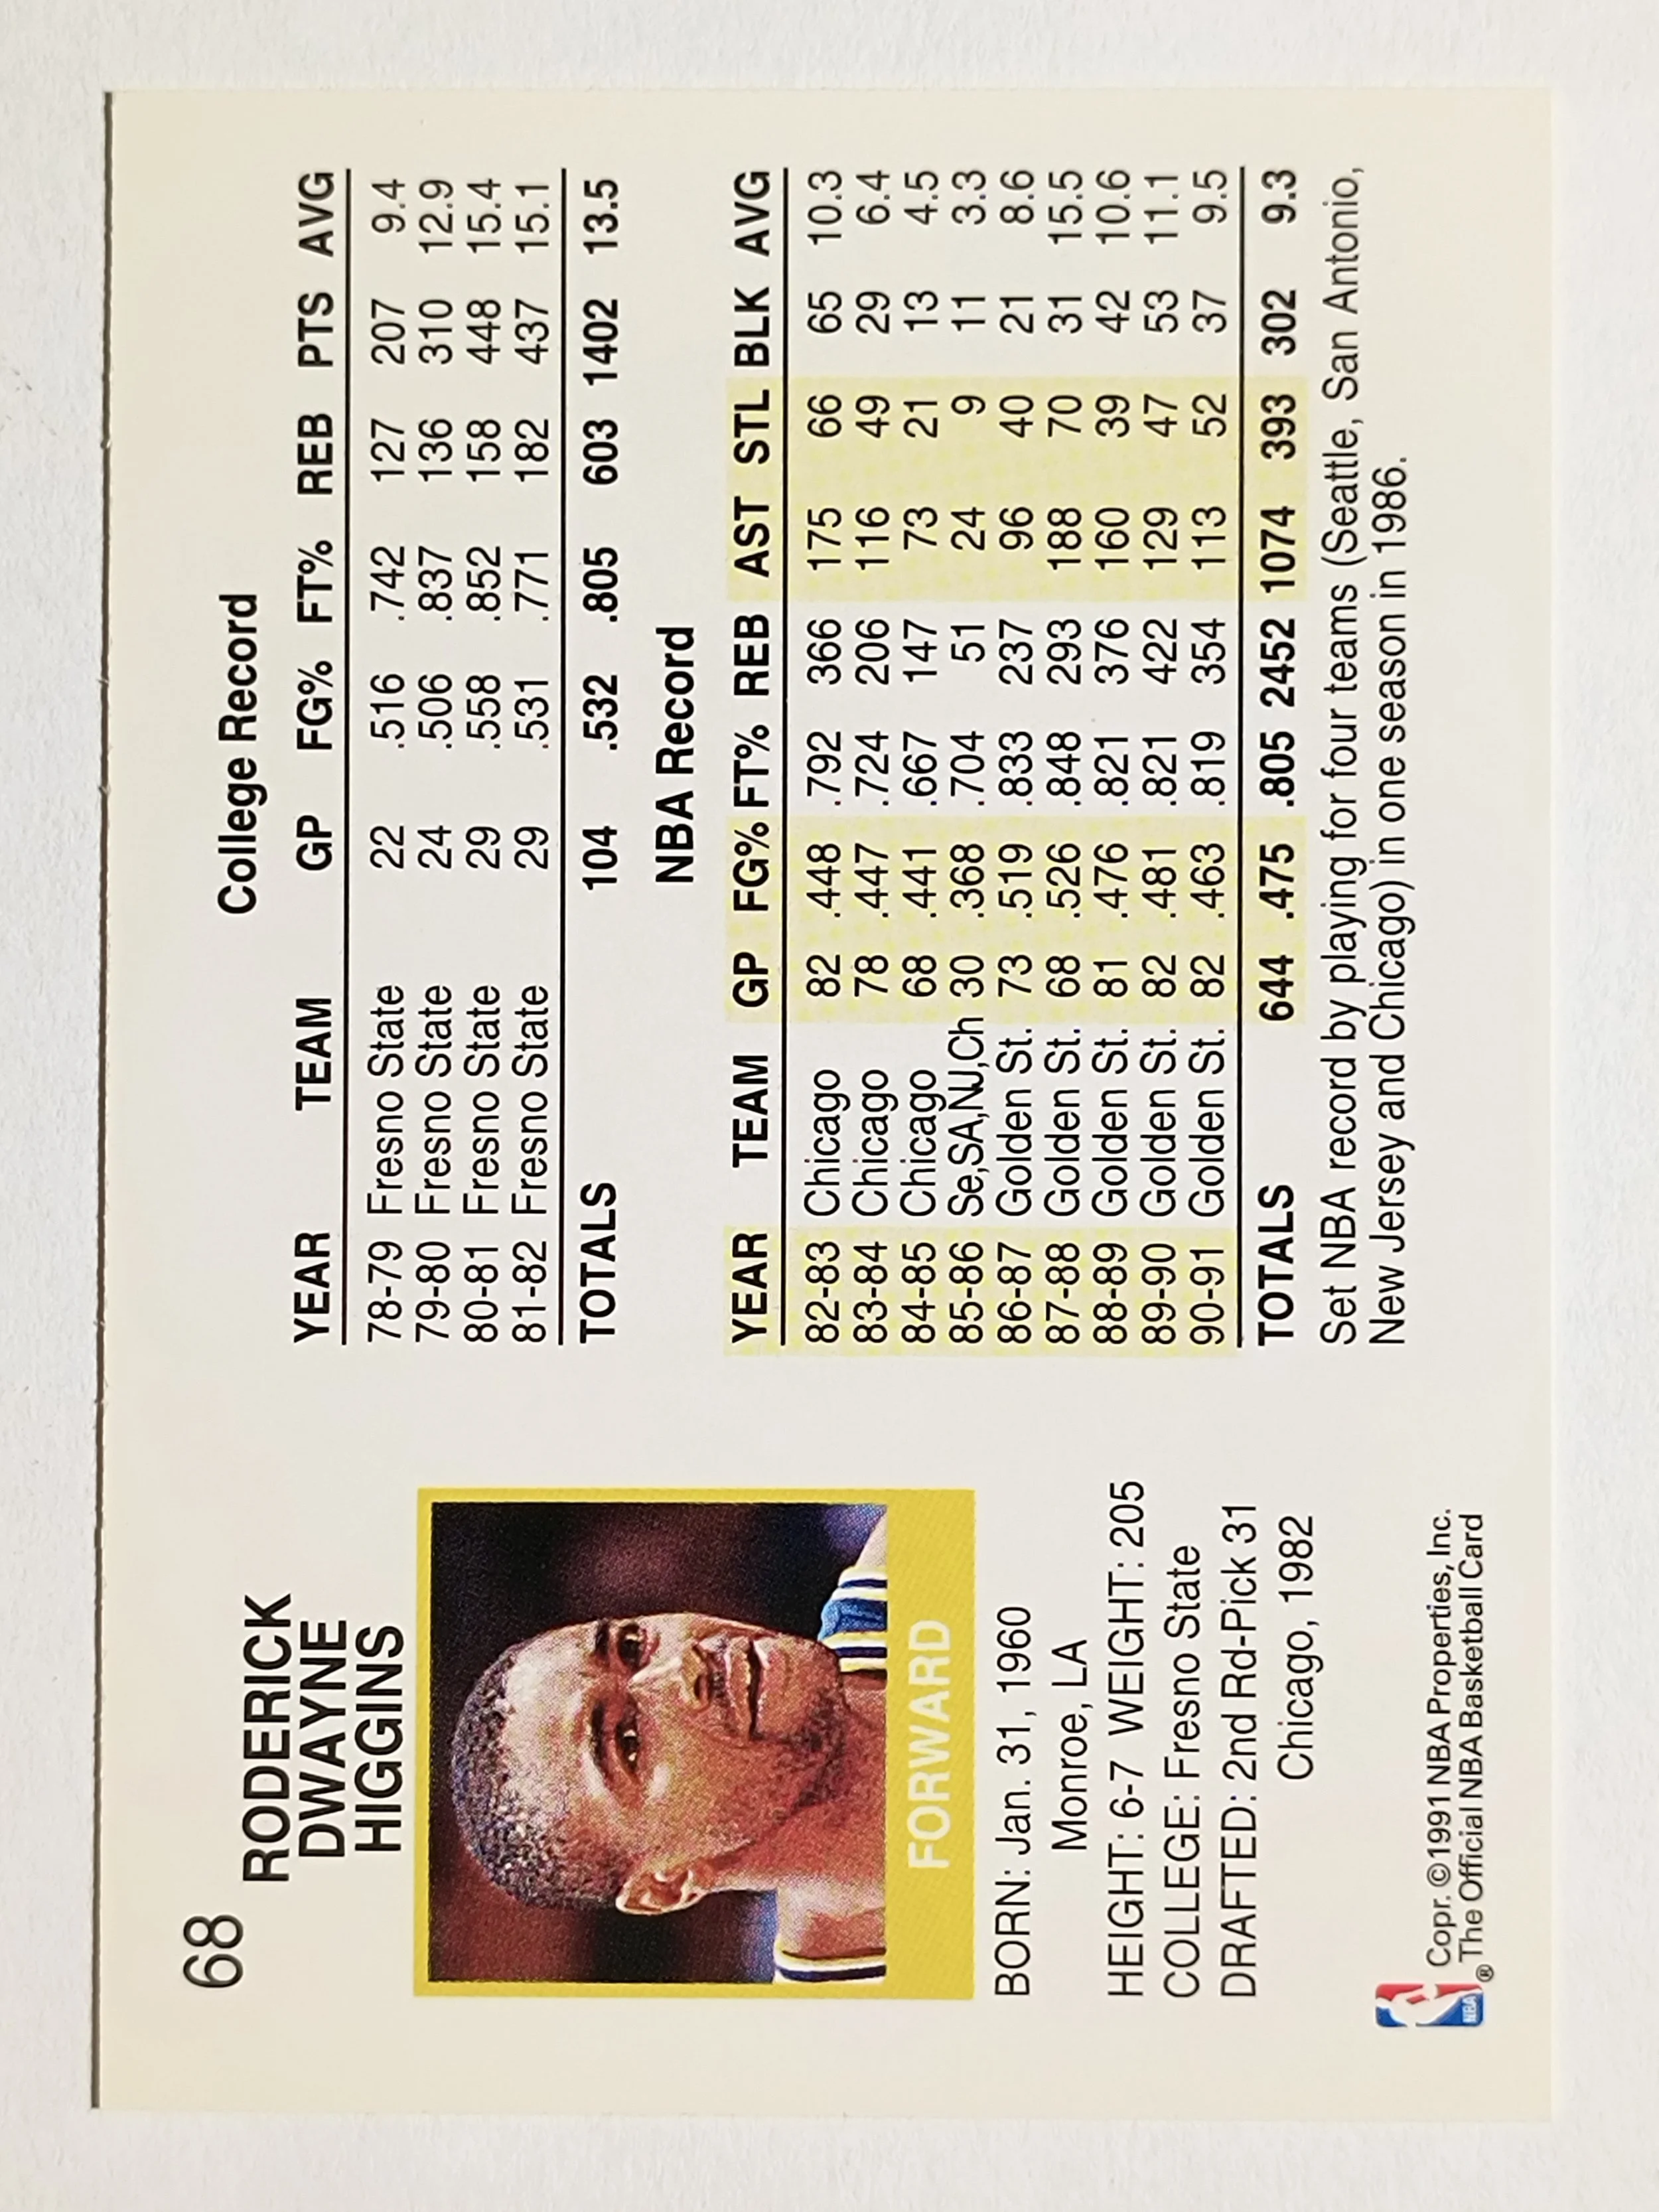 68
RODERICK
DWAYNE
HIGGINS
FORWARD
BORN: Jan. 31, 1960
Monroe, LA
HEIGHT: 6-7 WEIGHT: 205
COLLEGE: Fresno State
DRAFTED: 2nd Rd-Pick 31
Chicago, 1982
NBA
®
Copr. ©1991 NBA Properties, Inc.
The Official NBA Basketball Card
College Record
YEAR TEAM GP FG% FT% REB PTS AVG
78-79 Fresno State 22 .516 .742 127 207 9.4
79-80 Fresno State 24 .506 .837 136 310 12.9
80-81 Fresno State 29 .558 .852 158 448 15.4
81-82 Fresno State 29 .531 .771 182 437 15.1
TOTALS 104 .532 .805 603 1402 13.5
NBA Record
YEAR TEAM GP FG% FT% REB AST STL BLK AVG
82-83 Chicago 82 .448 .792 366 175 66 65 10.3
83-84 Chicago 78 .447 .724 206 116 49 29 6.4
84-85 Chicago 68 .441 .667 147 73 21 13 4.5
85-86 Se,SA,NJ,Ch 30 .368 .704 51 24 9 11 3.3
86-87 Golden St. 73 .519 .833 237 96 40 21 8.6
87-88 Golden St. 68 .526 .848 293 188 70 31 15.5
88-89 Golden St. 81 .476 .821 376 160 39 42 10.6
89-90 Golden St. 82 .481 .821 422 129 47 53 11.1
90-91 Golden St. 82 .463 .819 354 113 52 37 9.5
TOTALS 644 .475 .805 2452 1074 393 302 9.3
Set NBA record by playing for four teams (Seattle, San Antonio,
New Jersey and Chicago) in one season in 1986.